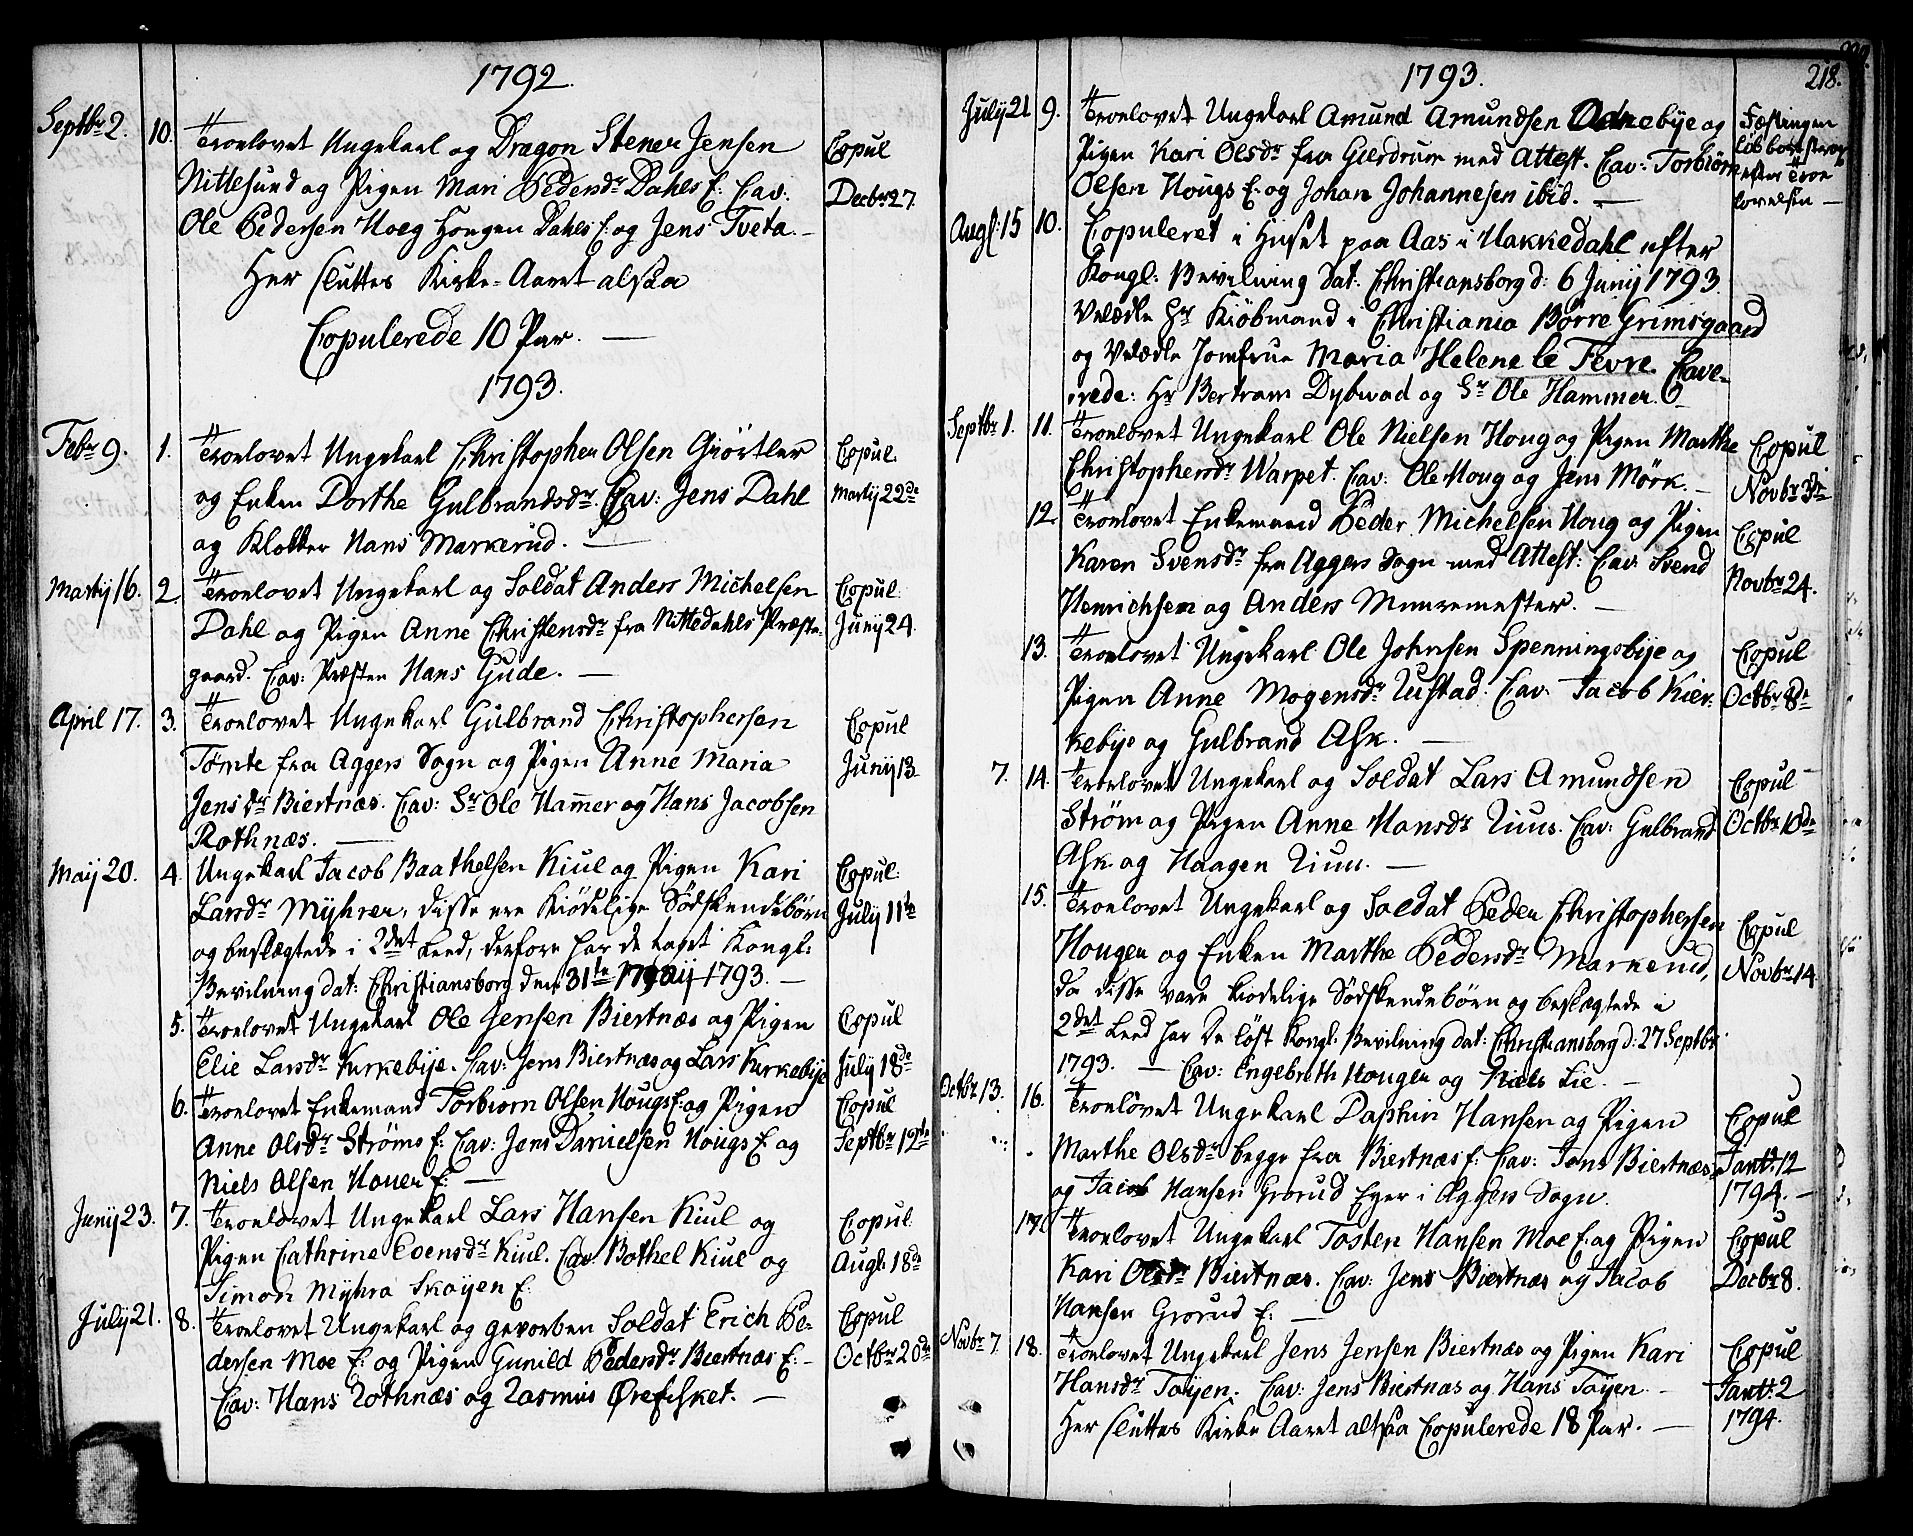 1792.
Septbr 2. 10. Troelovet Ungekarl og Dragon Stener Jensen
Nittesund og Pigen Mari Pedersdr Dahls E: Cav:
Ole Pedersen Hoeg Hougen Dahls E: og Jens Tveta. —
Copul
Decbr 27.
Her sluttes Kirke-Aaret altsaa
Copulerede 10 Par. —
1793.
Febr 9. 1. Troelovet Ungekarl Christopher Olsen Giörtler
og Enken Dorthe Gulbrandsdr. Cav: Jens Dahl
og Klokker Hans Markerud. —
Copul.
Martij 22de
Martij 16. 2. Troelovet Ungekarl og Soldat Anders Michelsen
Dahl og Pigen Anne Christensdr fra Nittedahls Præste-
gaard. Cav: Præsten Hans Gude. —
Copul.
Junij 24.
April 17. 3. Troelovet Ungekarl Gulbrand Christophersen
Tömte fra Aggers Sogn og Pigen Anne Maria
Jensdr Biertnæs. Cav: Sr Ole Hamer og Hans Jacobsen
Rothnæs. —
Copul
Junij 13.
Maij 20. 4. Ungekarl Jacob Baathelsen Kiul og Pigen Kari
Larsdr Myhrer, disse ere Kiödelige Södskendebörn
og beslægtede i 2det Leed, derfore har de taget Kongl:
Bevilning dat: Christiansborg den 31te Maij 1793. —
Copul:
July 11te
5. Troelovet Ungekarl Ole Jensen Biertnæs og Pigen
Elie Larsdr Kirkebye. Cav: Jens Biertnæs og Lars Kirkebije
Copul
July 18de
6. Troelovet Enkemand Torbiörn Olsen Hougs E: og Pigen
Anne Olsdr Ströms E: Cav: Jens Danielsen Hougs E: og
Niels Olsen Hauer E: —
Copul
Septbr 19te
Junij 23. 7. Troelovet Ungekarl Lars Hansen Kiul og
Pigen Cathrine Evensdr Kiul. Cav: Bothel Kiul og
Simon Myhra Skøyen E:
Copul
Augl: 18de
July 21. 8. Troelovet Ungekarl og gevorben Soldat Erich Pe-
dersen Moe E: og Pigen Gunild Pedersdr Biertnæs E: —
Cav: Hans Rothnæs og Rasmus Ørefisket. —
Copul
Octbr 20de
1793.
218.
July 21 9. Troelovet Ungekarl Amund Amundsen bije og
Pigen Kari Olsdr fra Gierdrum med Attest. Cav: Torbiörn
Olsen Hougs E: og Johan Johannesen ibid. —
Fæstingen
löb bort strax
efter Troe
lovelsen —
Augl: 15 10. Copuleret i Huset paa Aas i Hakkedahl efter
Kongl: Bevilning dat: Christiansborg d: 6 Junij 1793.
Velædle Sr Kiöbmand i Christiania Börre Grimsgaard
og Velædle Jomfrue Maria Helene le Fevre. Cave-
rede: Hr Bertram Dybwad og Sr Ole Hammer.
Septbr 1. 11. Troelovet Ungekarl Ole Nielsen Houg og Pigen Marthe
Christophersdr Warpet. Cav: Ole Houg og Jens Mörk. —
Copul
Novbr 3die
12. Troelovet Enkemand Peder Michelsen Houg og Pigen
Karen Svensdr fra Aggers Sogn med Attest: Cav: Svend
Henrichsen og Anders Muuremester. —
Copul
Novbr 24.
13. Troelovet Ungekarl Ole Johnsen Spenningsbije og
Pigen Anne Mogensdr Rustad. Cav: Jacob Kier-
kebije og Gulbrand Ask. —
Copul
Octbr 8de
7. 14. Troelovet Ungekarl og Soldat Lars Amundsen
Ström og Pigen Anne Hansdr Riuus. Cav: Gulbrand
Ask og Haagen Riuu. —
Copul
Octbr 10de
15. Troelovet Ungekarl og Soldat Peder Christophersen
Hougen og Enken Marthe Pedersdr Markerud,
da disse vare kiödelige Södskendebörn og beslægtede i
2det Leed har De löst Kongl: Bevilning dat: Christiansborg d: 27 Septbr
1793. — Cav: Engebreth Hougen og Niels Lie. —
Copul
Novbr 14.
Octbr 13. 16. Troelovet Ungekarl Daphin Hansen og Pigen
Marthe Olsdr begge fra Biertnæs E: Cav: Jens Biertnæs
og Jacob Hansen Grorud Eger i Aggers Sogn.
Copul
Jantr: 12
1794. —
17. Troelovet Ungekarl Tosten Hansen Moe E: og Pigen
Kari Olsdr Biertnæs. Cav: Jens Biertnæs og Jacob
Hansen Grorud E: —
Copul
Decbr 8.
Novbr 7. 18. Troelovet Ungekarl Jens Jensen Biertnæs og Pigen Kari
Hansdr Töyen. Cav: Jens Biertnæs og Hans Töyen. —
Copul
Jantr: 2
1794.
Her sluttes Kirke Aaret altsaa Copulerede 18 Par. —